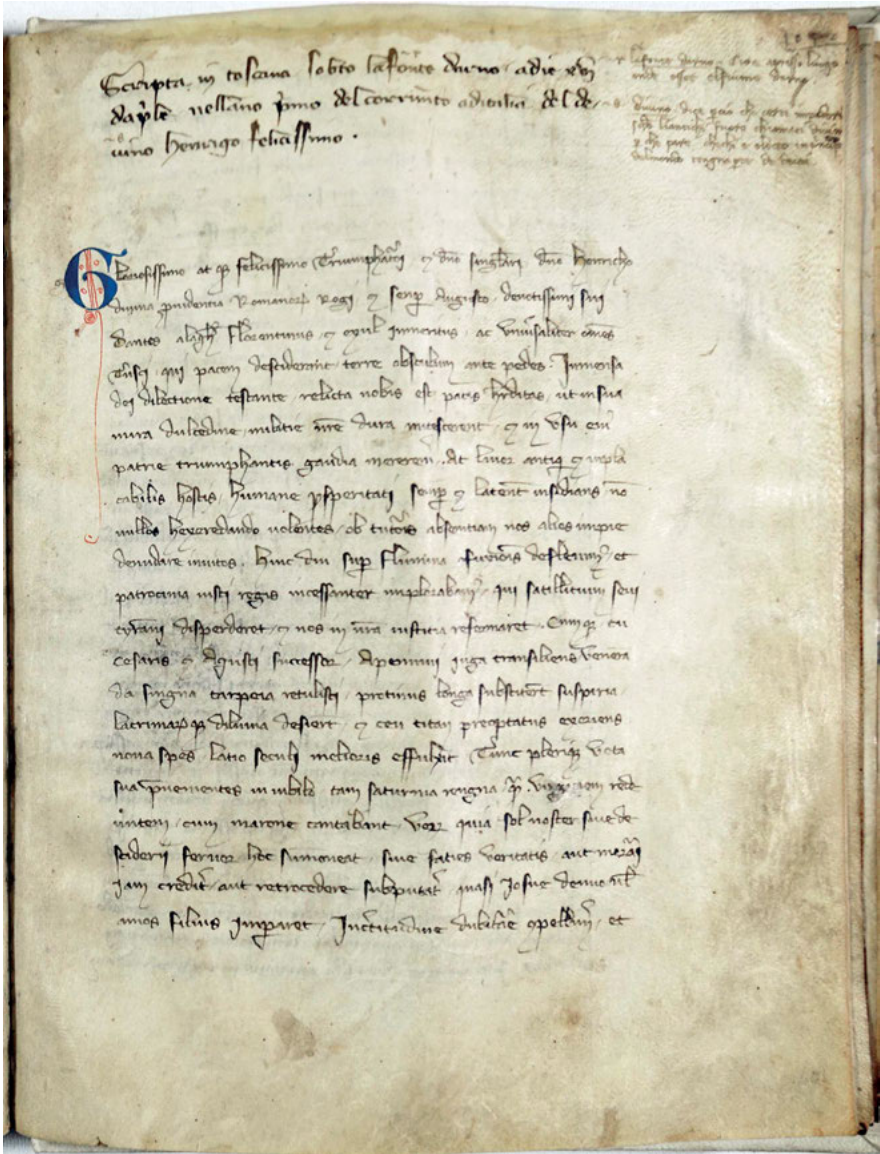 Scripta in toscana sobto la fonte durno adie xvii
daple nellano pmo del corrimto aditalia del de
uino henrigo felicissimo .
Gloriosissimo at q felicissimo Triumphatori ⁊ dno singlari dno Henricho
diuina prudentia Romanor Regi ⁊ semp Augusto . deuotissimi sui
dantes alagh Florentinus ⁊ exul inmeritus . ac vniuersaliter omes
Tusci . qui pacem desciderant . terre obsculum ante pedes . Inmensa
dei dilectione testante . relicta nobis est pacis hrditas . ut in sua
mira dulcedine . militie nre dura mitescerent . ⁊ in usu eius
patrie triumphantis gaudia mererem . At liuor antiq ⁊ inpla
cabilis hostis . humane psperitati semp ⁊ latent insidians no
nullos hexeredando uolentes . ob tutoris absentiam nos alios impie
denudare inuitos . hinc diu sup Flumina fusionis defleuim . et
patrocinia iusti regis incessanter implorabam . qui satillitium seui
tyrani disperderet . ⁊ nos in nra iustitia reformaret . Cumq . tu
cesaris ⁊ Agusti successor . Apennini iuga transiliens venera
da singna tarpeia retulisti . protinus longa substiterut suspiria
lacrimarq diluuia desiert . ⁊ ceu titan preoptatus exoriens
noua spes latio seculi melioris effulsit Tunc pleriq . vota
sua puenientes in iubilo tam saturnia rengna . q . virginem rede
untem . cum marone cantabant . Ver quia sol noster siue de
sciderii feruor hoc sumoneat . siue faties veritatis . aut morari
iam credit . aut retrocedere subputat . quasi Iosue denuo ul
amos filius imparet . Incertitudine dubitare opellim . et